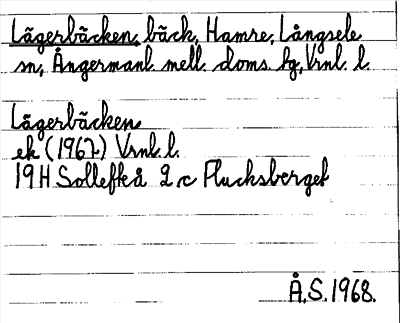 Lägerbäcken, bäck, Hamre, Långsele
sn, Ångermanl. mell. doms. lg, Vrnl. l.
Lägerbäcken
ek (1967) Vrnl. l.
19H Sollefteå 2 c Plucksberget
Å.S. 1968.